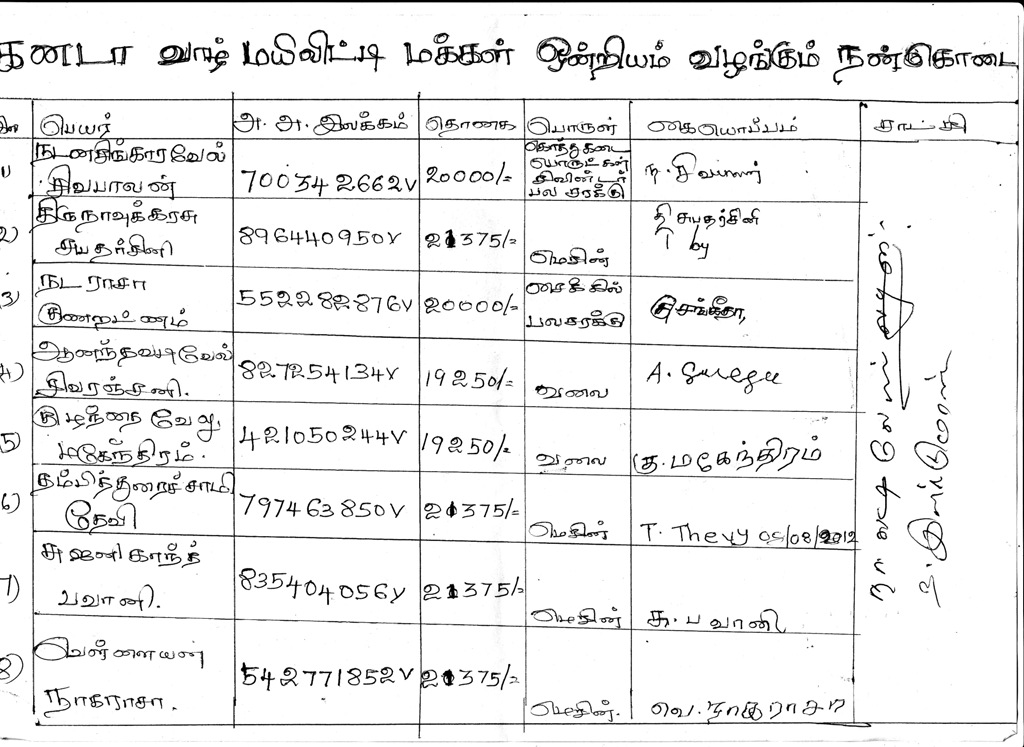 கனடா வாழ் மயிலிட்டி மக்கள் ஒன்றியம் வழங்கும் நன்கொடை
பெயர் அ. அ. இலக்கம் தொகை பொருள் கையொப்பம் சாட்சி
நடனசிங்காரவேல்
சிவபாலன்
700342662V 20000/=
பொருட்கள்
சிலிண்டர்
பல சரக்கு
2) திருநாவுக்கரசு
சுயதர்சினி
896440950V 21375/= மெசின்
தி சுயதர்சினி
by
3) நடராசா
குணரட்ணம்
552282876V 20000/=
சைக்கில்
பலசரக்கு
4) ஆனந்தவடிவேல்
சிவரஞ்சனி.
827254134V 19250/= வலை
5) குழந்தை வேலு
மகேந்திரம்.
421050244V 19250/= வலை கு. மகேந்திரம்
6) தம்பித்துரைச்சாமி
தேவி
797463850V 21375/= மெசின் T. Thevy 05/08/2012
7) சுஜனிகாந்த்
பவானி.
835404056V 21375/= மெசின் சு. பவானி
8) வெள்ளையன்
நாகராசா.
542771852V 21375/= மெசின். வெ. நாகராசா